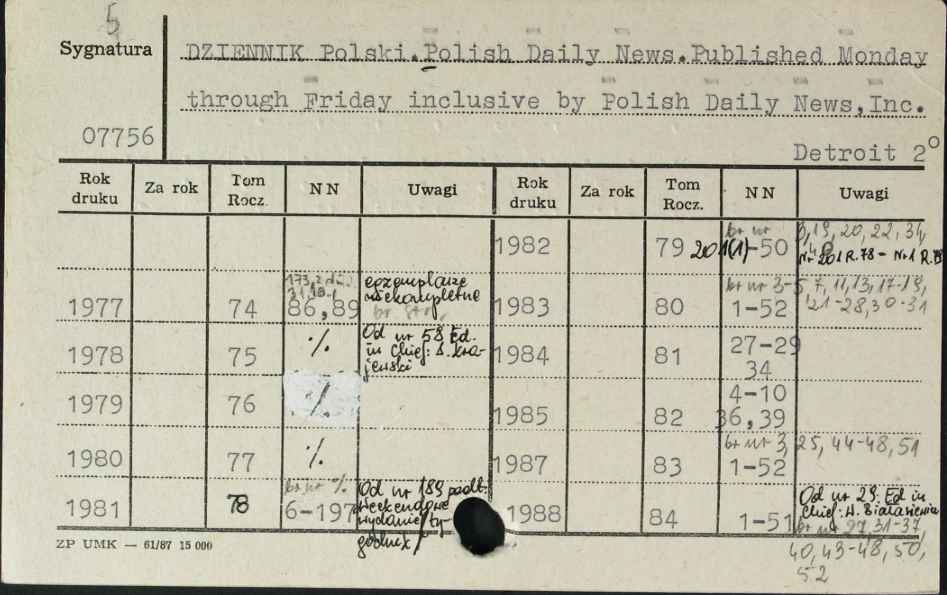 5
Sygnatura
DZIENNIK Polski.Polish Daily News.Published Monday
through Friday inclusive by Polish Daily News,Inc.
07756
Detroit 2°
Rok druku Za rok Tom Rocz. NN Uwagi Rok druku Za rok Tom Rocz. NN Uwagi
1982 79 201(1)-50 br nr 19, 20, 22, 34,
Nr 201 R.78 - Nr 1 R.79
1977 74 86,89 egzemplarze
niekompletne
br. str.
1983 80 1-52 br nr 3-5 7, 11, 13, 17-19,
21-28, 30-31
1978 75 ·/. Od nr 58 Ed.
in Chief: S. Kra-
jewski
1984 81 27-29
34
1979 76 ·/.
1985 82 4-10
36,39
1980 77 ·/.
1987 83 1-52 br nr 3, 25, 44-48, 51
1981 78 6-197 br nr ·/. Od nr 189 podt.
weekendowe
wydanie/ty-
godnik/
1988 84 1-51 Od nr 29 Ed in
Chief: H. Białasiewicz
br nr 27, 31-37,
40, 43-48, 50,
52
ZP UMK — 61/87 15 000